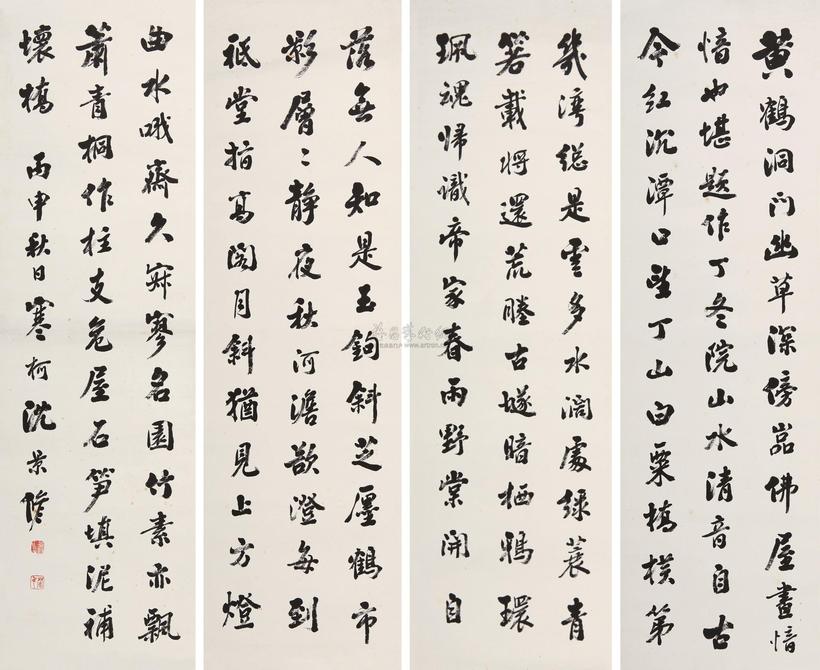 黄鶴洞門幽草深傍嵓佛屋晝愔
愔也堪題作丁冬院山水清音自古
今紅沉潭口望丁山白粟橋横第
幾灣總是雲多水濶處緑蓑青
箬載将還荒塍古墜暗栖鴉環
珮魂歸識帝家春雨野棠開自
落無人知是玉鉤斜芝厓鶴市
影層〻静夜秋河澹欲澄每到
祇堂指高閣月斜猶見上方燈
曲水哦齋久寂寥名園竹素亦飄
蕭青桐作柱支危屋石笋填泥補
壞橋 丙申秋日寒柯沈景脩